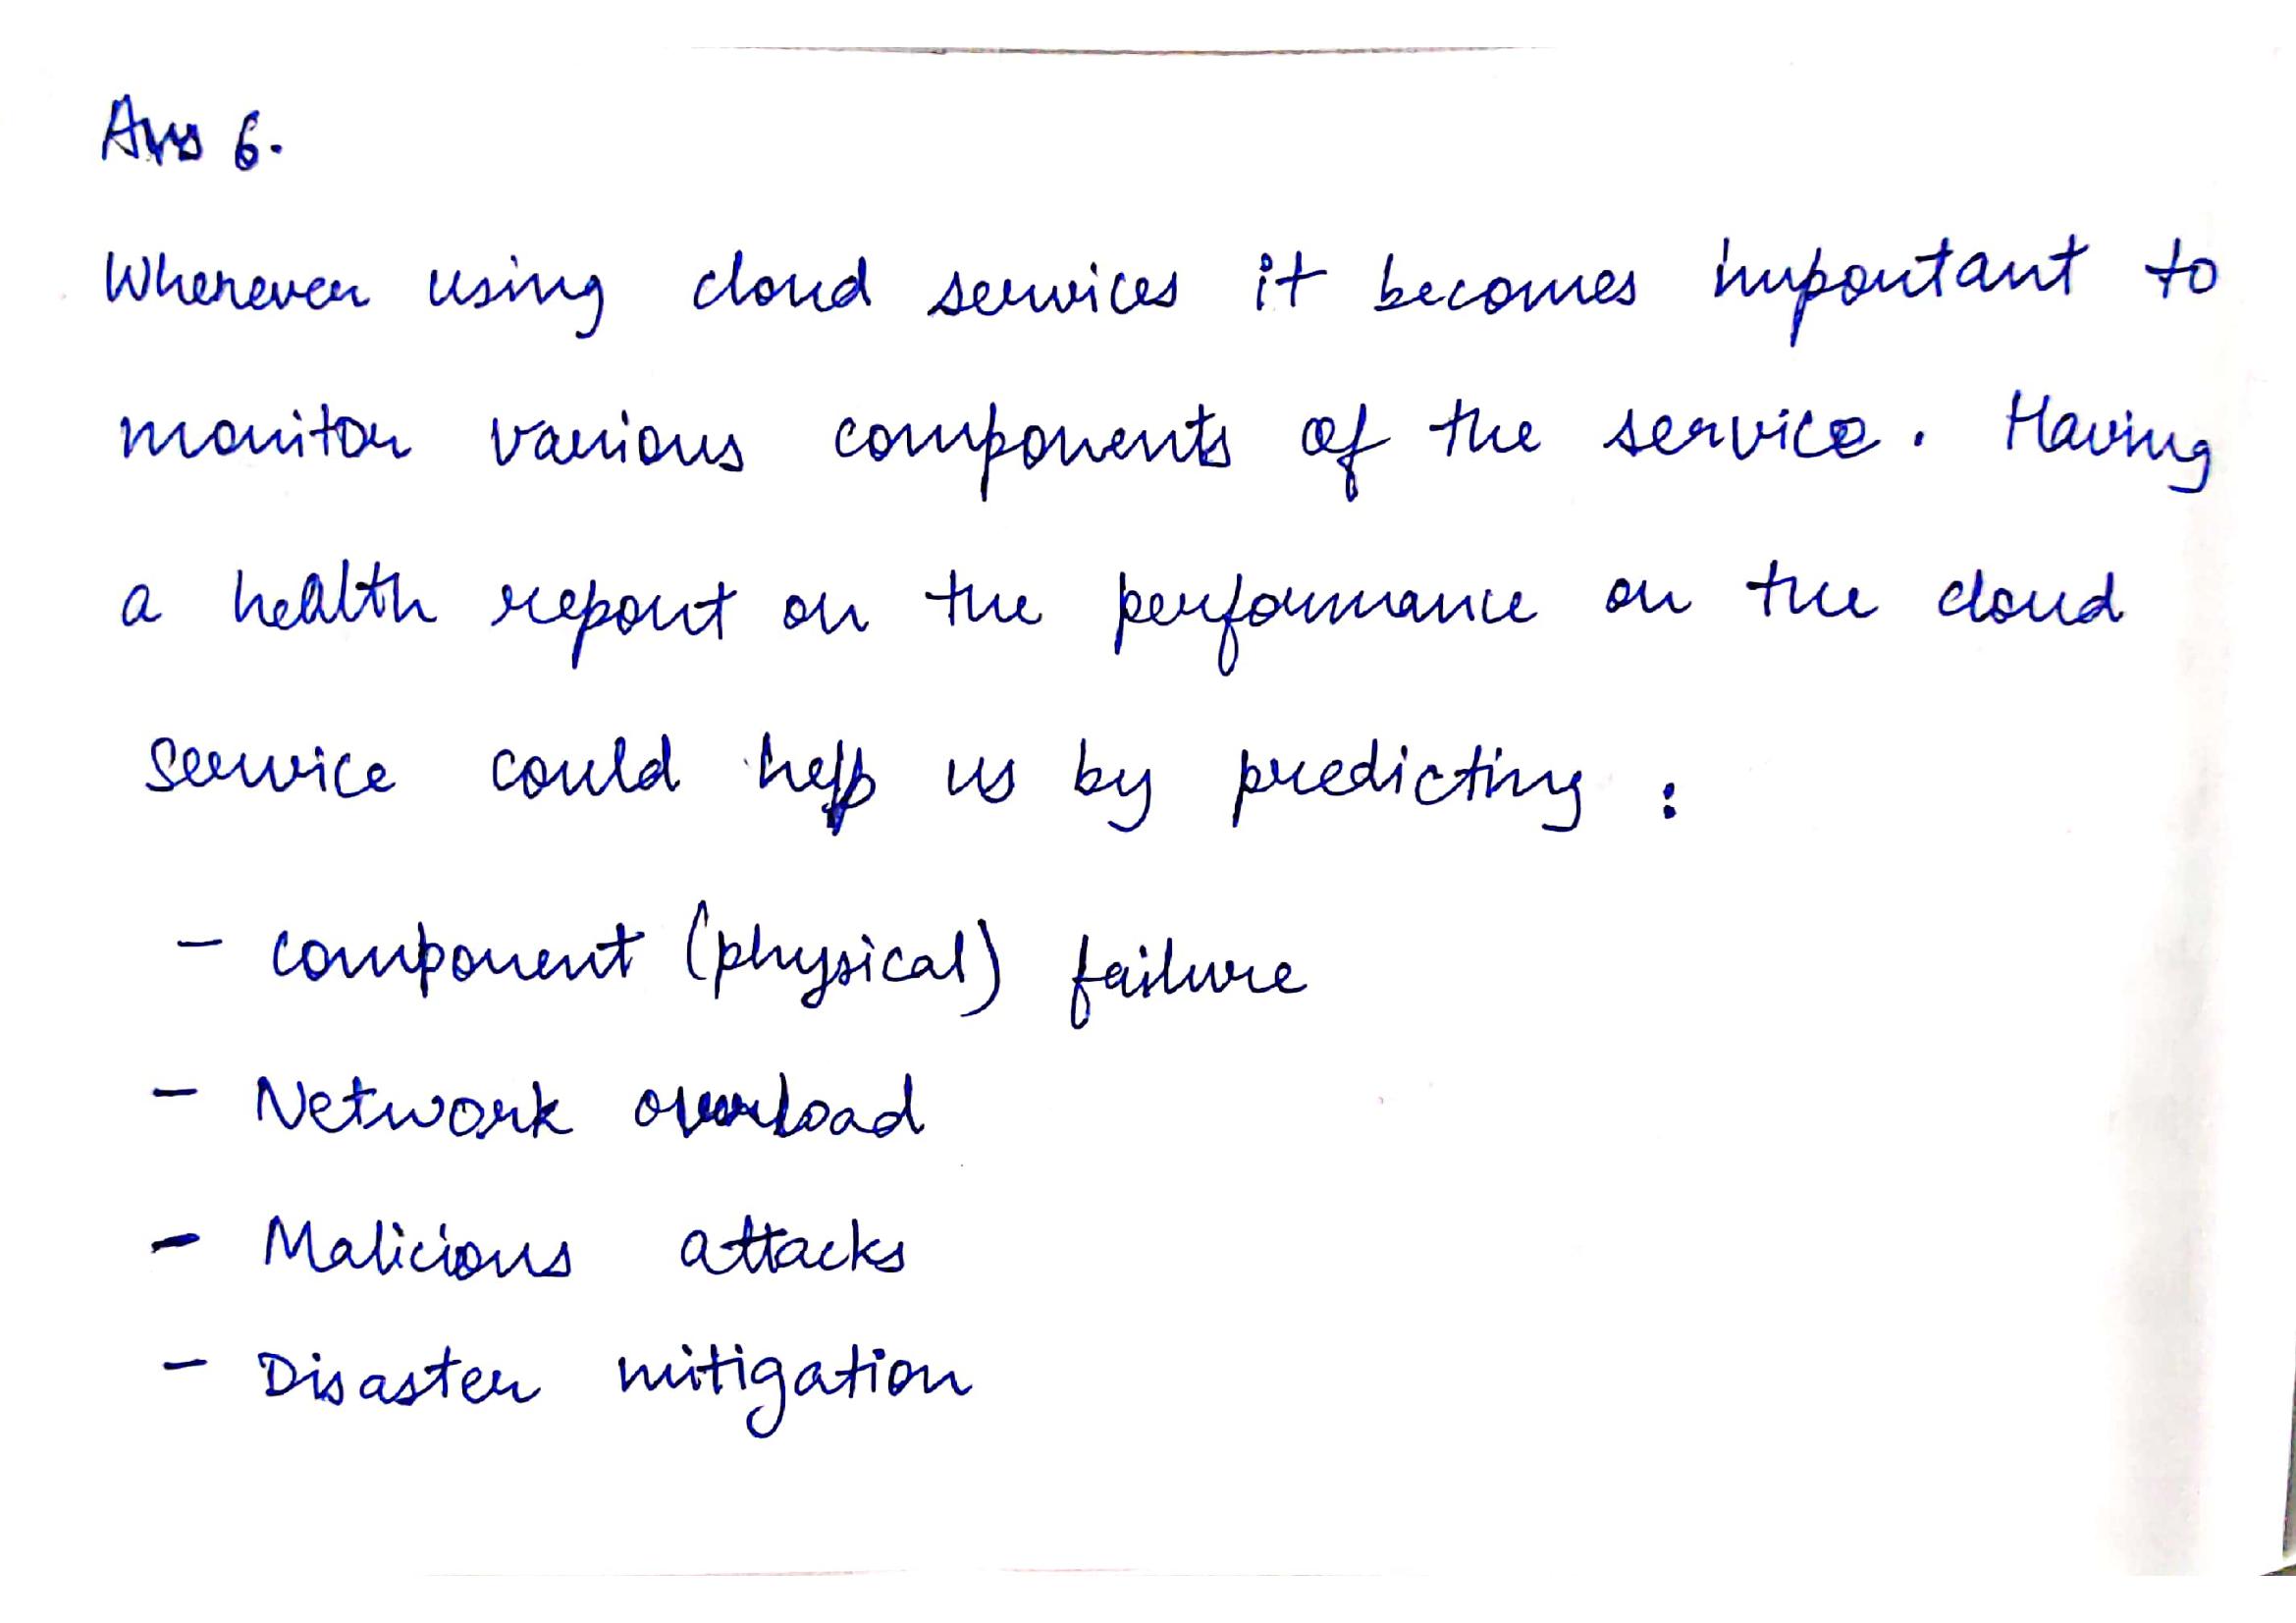 Ans 6.
Whenever using cloud services it becomes important to
monitor various components of the service. Having
a health report on the performance on the cloud
service could help us by predicting :
- component (physical) failure
- Network overload
- Malicious attacks
- Disaster mitigation